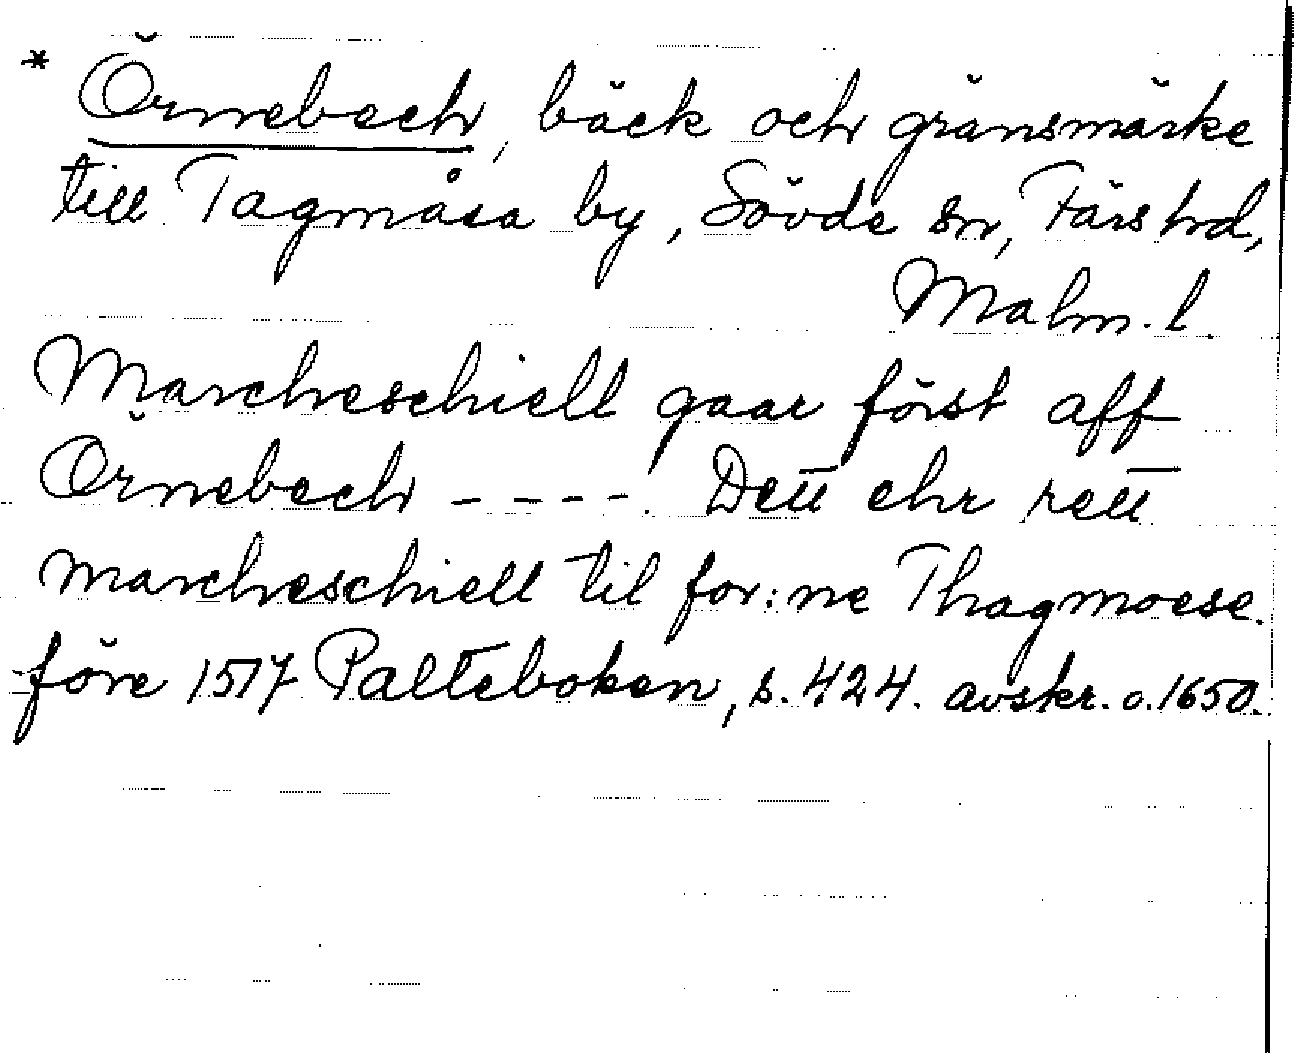 * Örnebech, bäck och gränsmärke
till Tagmåsa by, Sövde sn, Färs hd,
Malm. l.
Marcheschiell gaar först aff
Örnebech ----. Dett ehr rett
marcheschiell til for:ne Thagmoese.
före 1517 Palteboken, s. 424. avskr. o. 1650.